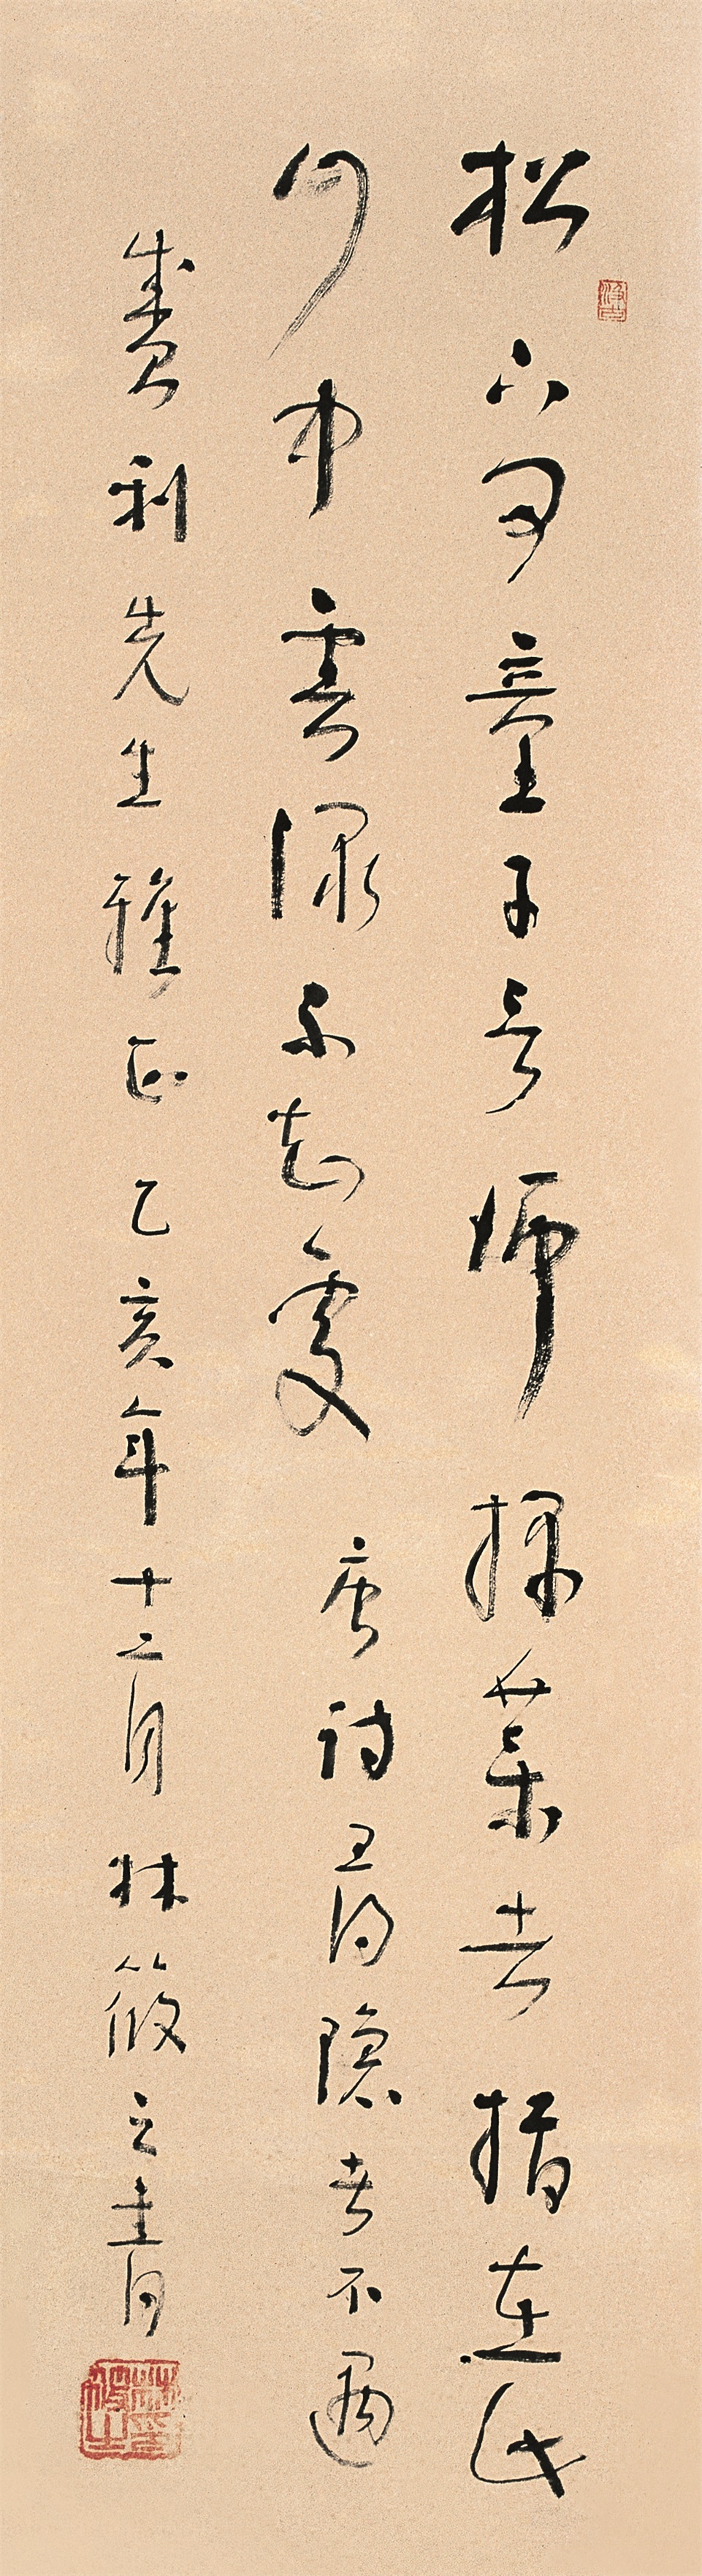 松下问童子言师採药去指在此
山中雲深不知處 唐詩尋隱者不遇
利先生雅正乙亥年十二月林筱之書
林筱之印